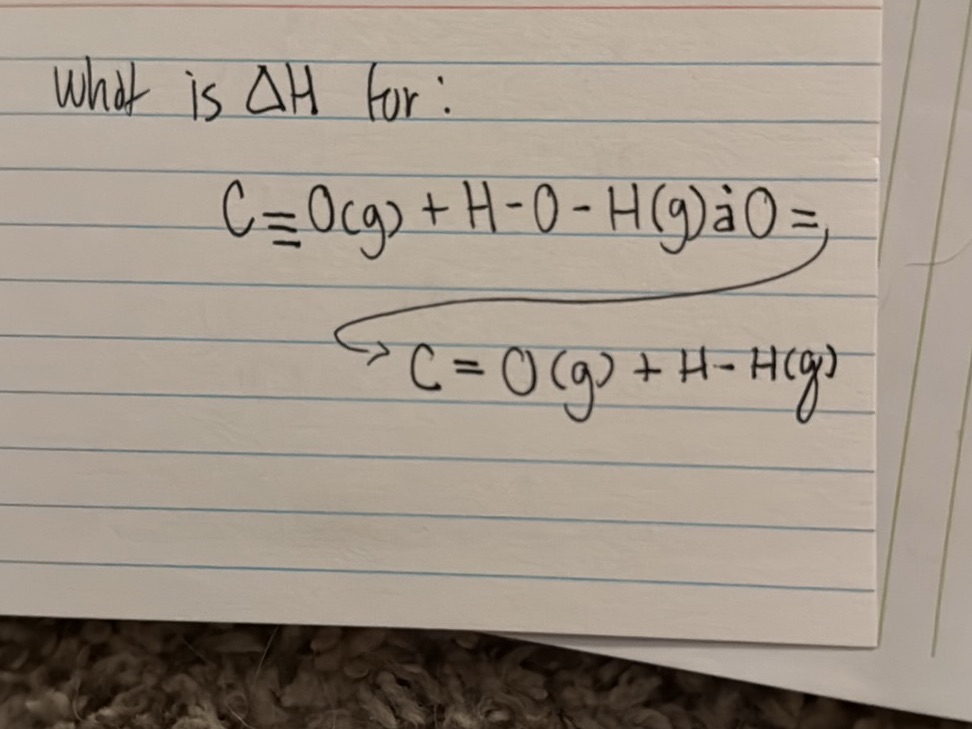 What is ΔH for:
C≡O(g) + H-O-H(g)àO=
C=O(g) + H-H(g)